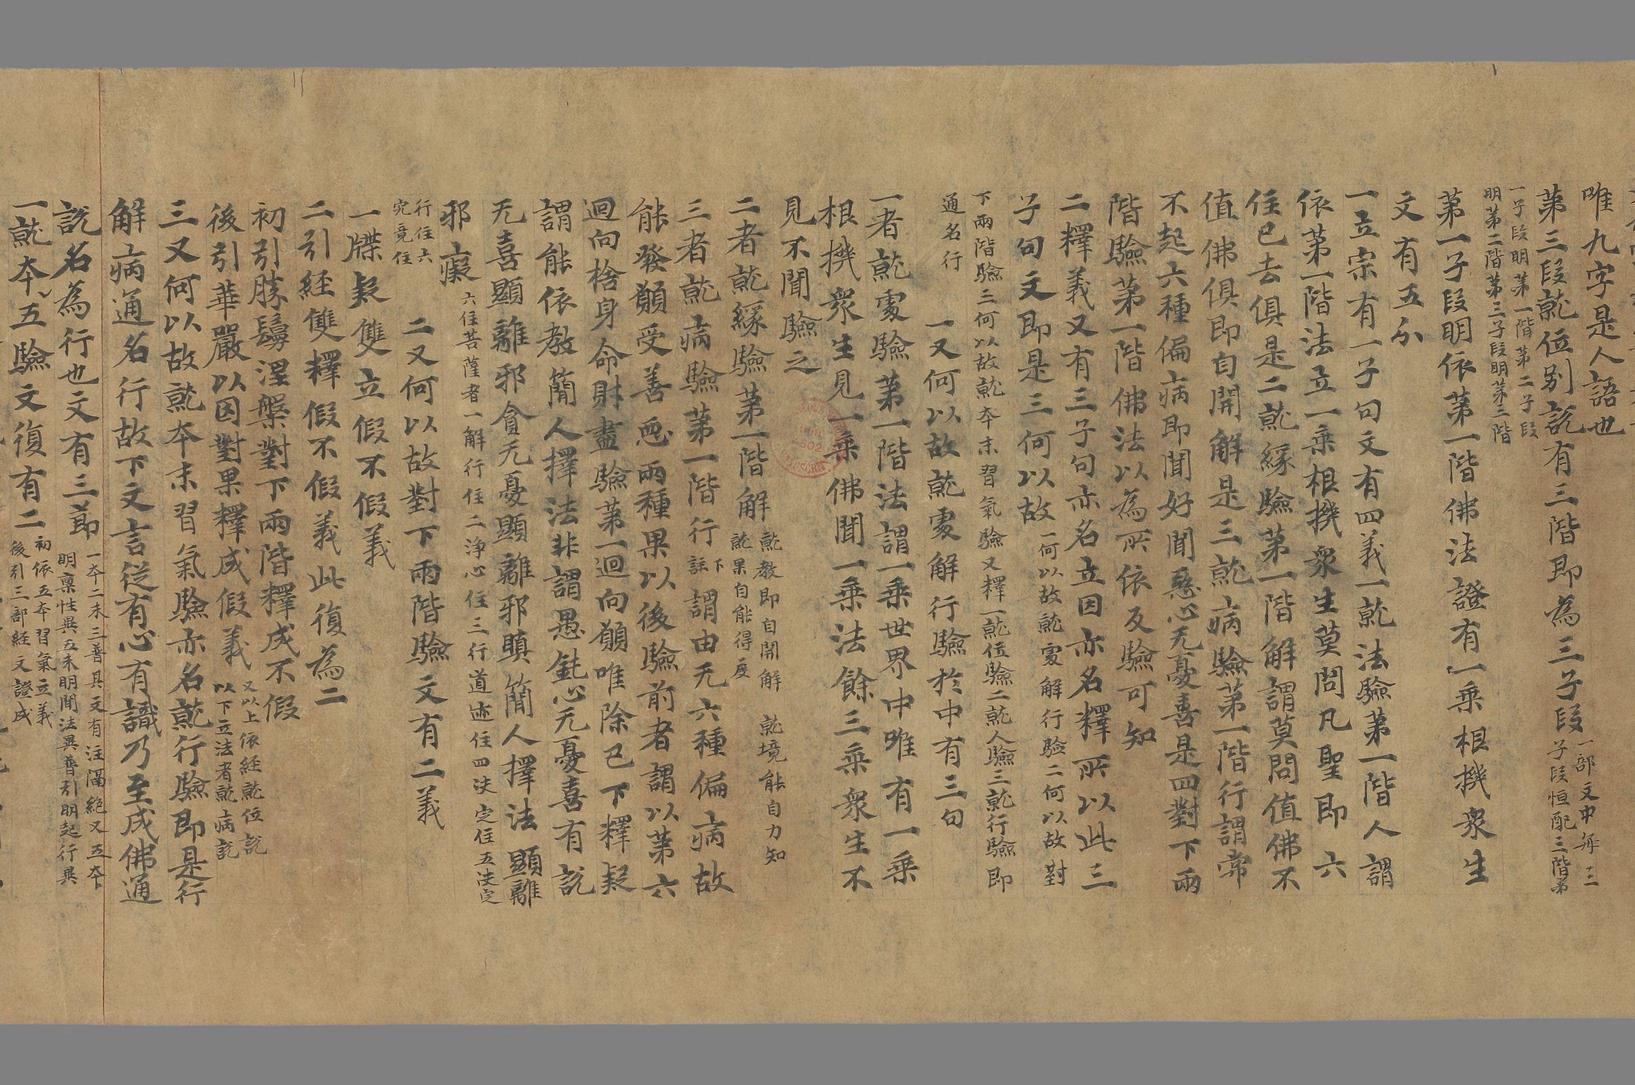 唯九字是人語也
第三段就位別說有三階即為三子段
一部文中每三
子段恒配三階第
一子段明第一階第二子段
明第二階第三子段明第三階
第一子段明依第一階佛法證有一乘根機衆生
文有五分
一立宗有一子句文有四義一就法驗第一階人謂
依第一階法立一乘根機衆生莫問凡聖即六
住已去俱是二就緣驗第一階解謂莫問值佛不
值佛俱即自開解是三就病驗第一階行謂常
不起六種偏病即聞好聞惡心无憂喜是四對下兩
階驗第一階佛法以為所依及驗可知
二釋義又有三子句亦名立因亦名釋所以此三
子句文即是三何以故
一何以故就處解行驗二何以故對
下兩階驗三何以故就本末習氣驗又釋一就位驗二就人驗三就行驗即
通名行
一又何以故就處解行驗於中有三句
一者就處驗第一階法謂一乘世界中唯有一乘
根機衆生見一乘佛聞一乘法餘三乘衆生不
見不聞驗之
二者就緣驗第一階解
就教即自開解 就境能自力知
就果自能得度
三者就病驗第一階行
下
註
謂由无六種偏病故
能發願受善惡兩種果以後驗前者謂以第六
迴向捨身命財盡驗第一迴向願唯除已下釋疑
謂能依教簡人擇法非謂愚鈍心无憂喜有說
无喜顯離邪貪无憂顯離邪瞋簡人擇法顯離
邪癡
六住菩薩者一解行住二淨心住三行道迹住四決定住五決定
行住六
究竟住
二又何以故對下兩階驗文有二義
一牒疑雙立假不假義
二引經雙釋假不假義此復為二
初引勝鬘涅槃對下兩階釋成不假
後引華嚴以因對果釋成假義
又以上依經就位說
以下立法者就病說
三又何以故就本末習氣驗亦名就行驗即是行
解病通名行故下文言從有心有識乃至成佛通
說名為行也文有三節
一本二末三普具文有注滿絕又五本
明稟性異五末明聞法異普引明起行異
一就本五驗文復有二
初依五本習氣立義
後引三部經文證成